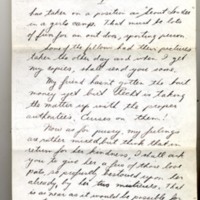 has taken on a position as "Scout Leader"
in a girls camp. That must be lots
of fun for an out door, sporting person
Some of the fellows had their pictures
taken the other day and when I get
my copies, shall send you some.
My friend hasn't gotten his
money yet but Uncle is taking
the matter up with the proper
authorities. Curses on them!
Now as for pussy, my feelings
are rather mixed, but think that in
return for her kindness, I shall ask
you to give her, a few of those love
pats, so perfectly bestowed upon her
already, by her two mistresses. That
is as near as it would be possible for